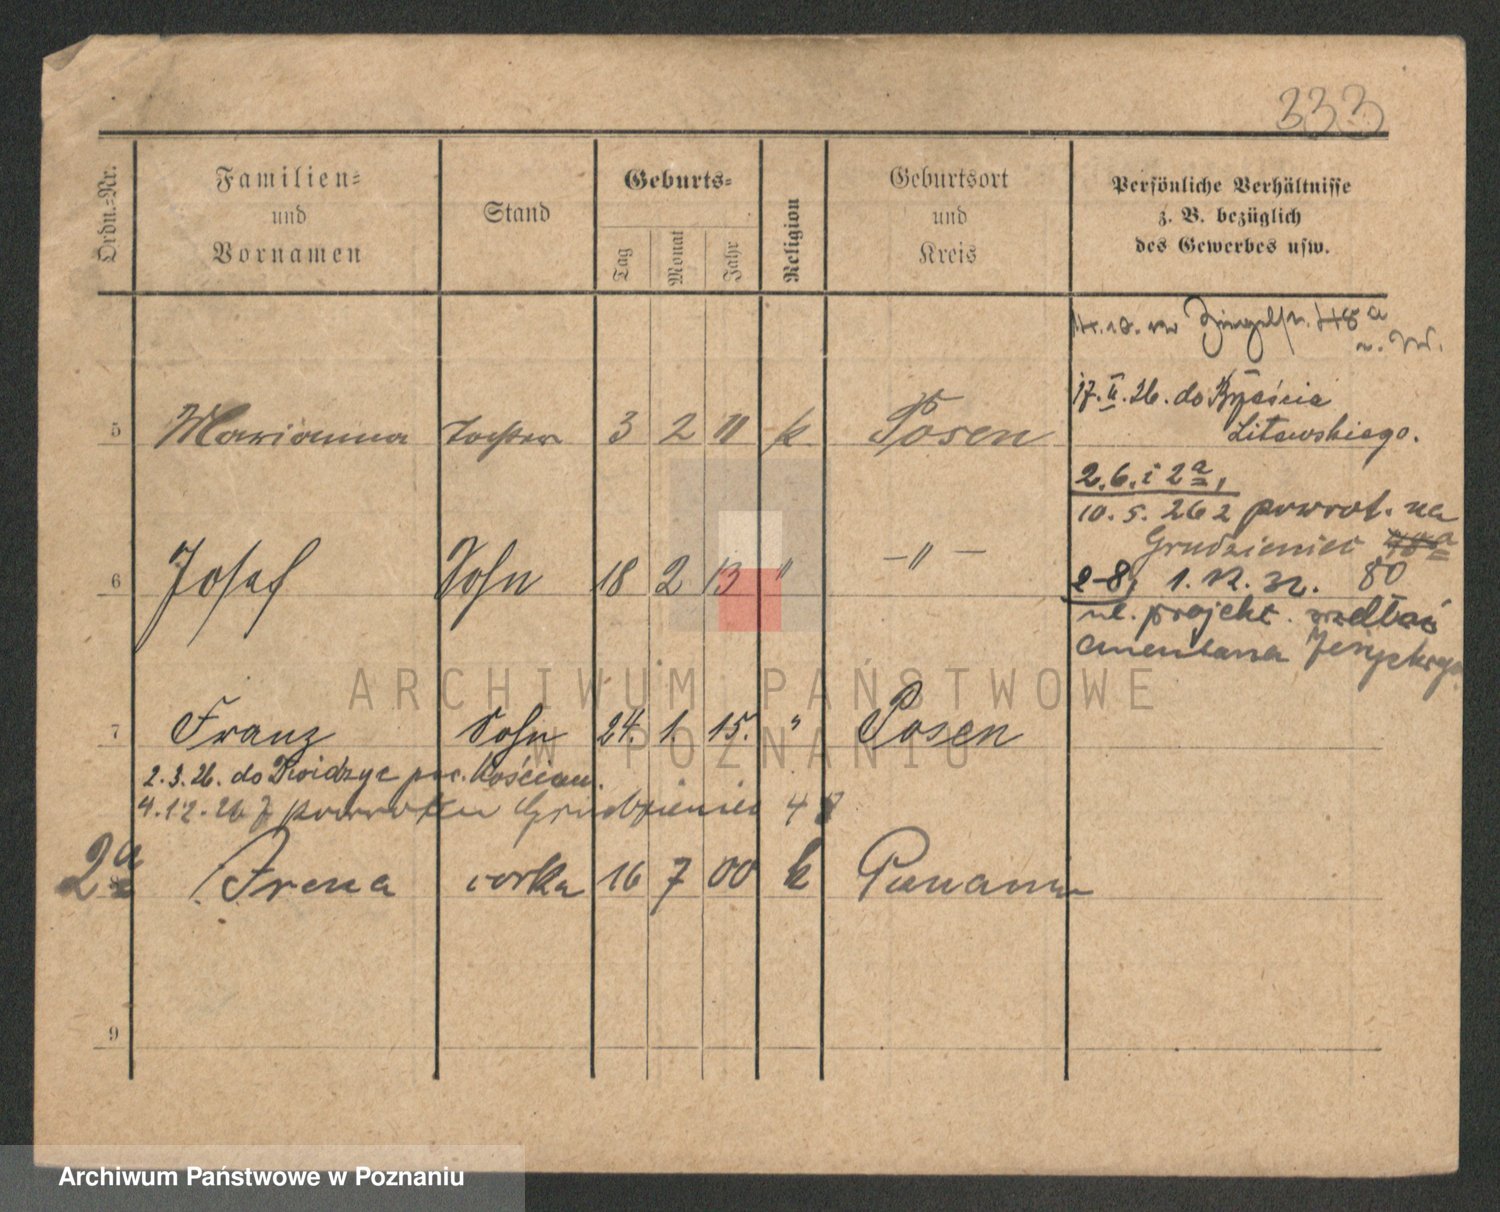 333
Ordn.-Nr.
Familien-
und
Vornamen
Stand
Geburts-
Tag
Monat
Jahr
Religion
Geburtsort
und
Kreis
Persönliche Verhältnisse
z. B. bezüglich
des Gewerbes usw.
5 Marianna Tochter 3 2 11 k. Posen
17. II. 26. do Brześcia
Litewskiego.
2. 6. i 2a,
10. 5. 26 powrot. na
Grudzieniec 48a
6 Josef Sohn 18 2 13 " —"—
2-8, 1. 12. 32. 80
ul. projekt.
cmentarza
7 Franz Sohn 24. 1. 15. " Posen
2. 3. 26. do pow. Kościan.
4. 12. 26 z powrotem Grudzieniec 48
2a Irena córka 16 7 00 k
9
ARCHIWUM PAŃSTWOWE
W POZNANIU
Archiwum Państwowe w Poznaniu